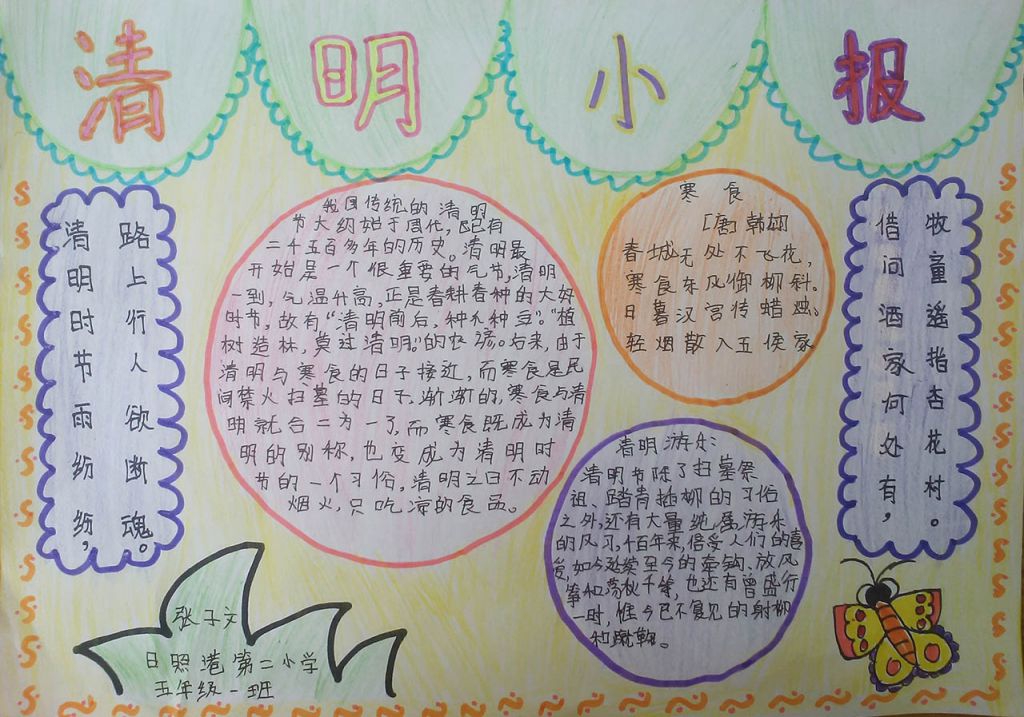 清明小报
清明时节雨纷纷，
路上行人欲断魂。
我国传统的清明
节大约始于周代，已有
二千五百多年的历史。清明最
开始是一个很重要的气节，清明
一到，气温升高，正是春耕春种的大好
时节，故有“清明前后，种瓜种豆”。“植
树造林，莫过清明。”的农谚。后来，由于
清明与寒食的日子接近，而寒食是民
间禁火扫墓的日子，渐渐的，寒食与清
明就合二为一了，而寒食既成为清
明的别称，也变成为清明时
节的一个习俗，清明之日不动
烟火，只吃凉的食品。
寒食
［唐］韩翃
春城无处不飞花，
寒食东风御柳斜。
日暮汉宫传蜡烛。
轻烟散入五侯家
借问酒家何处有，
牧童遥指杏花村。
清明游乐：
清明节除了扫墓祭
祖、踏青插柳的习俗
之外，还有大量纯属游乐
的风习，千百年来，倍受人们的喜
爱，如今延续至今的牵钩、放风
筝和荡秋千等，也还有曾盛行
一时，惟今已不复见的射柳
和蹴鞠。
张子文
日照港第二小学
五年级一班